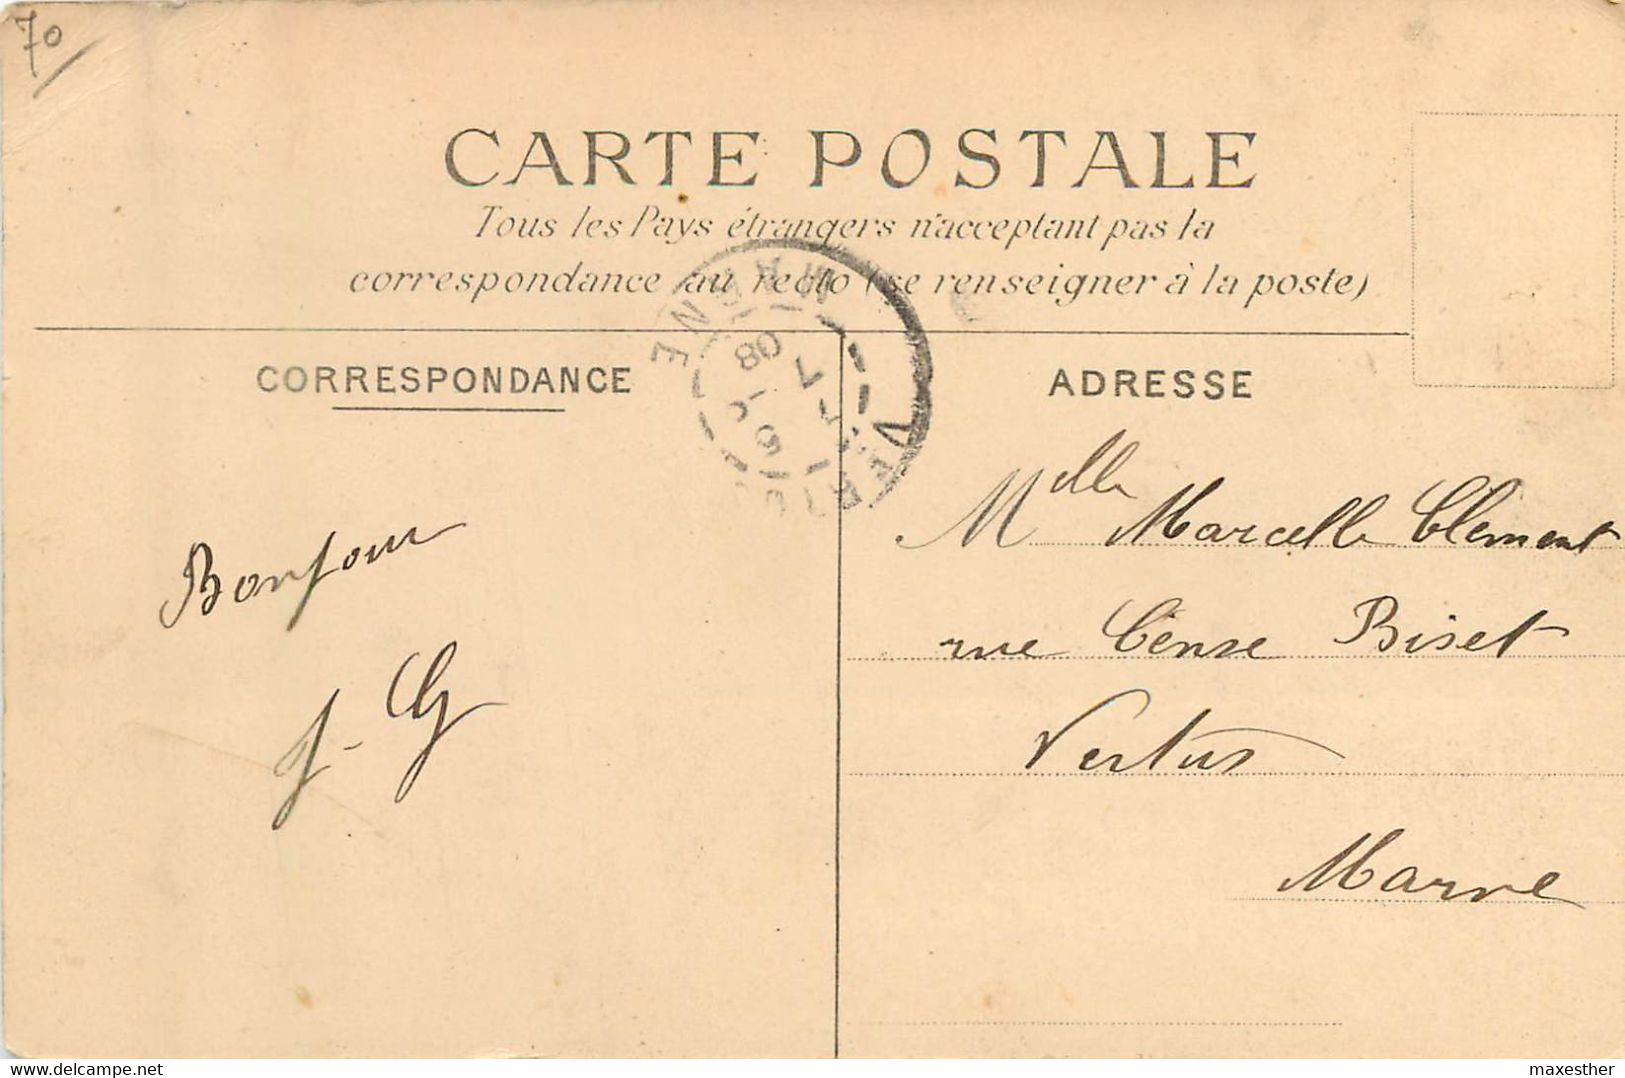 70
CARTE POSTALE
Tous les Pays étrangers n'acceptant pas la
correspondance au recto (se renseigner à la poste)
CORRESPONDANCE
ADRESSE
VERTUS
MARNE
7
08
Bonjour
J-CG
Melle Marcelle Clement
rue Cense Biset
Vertus
Marne
Delcampe.net
maxesther